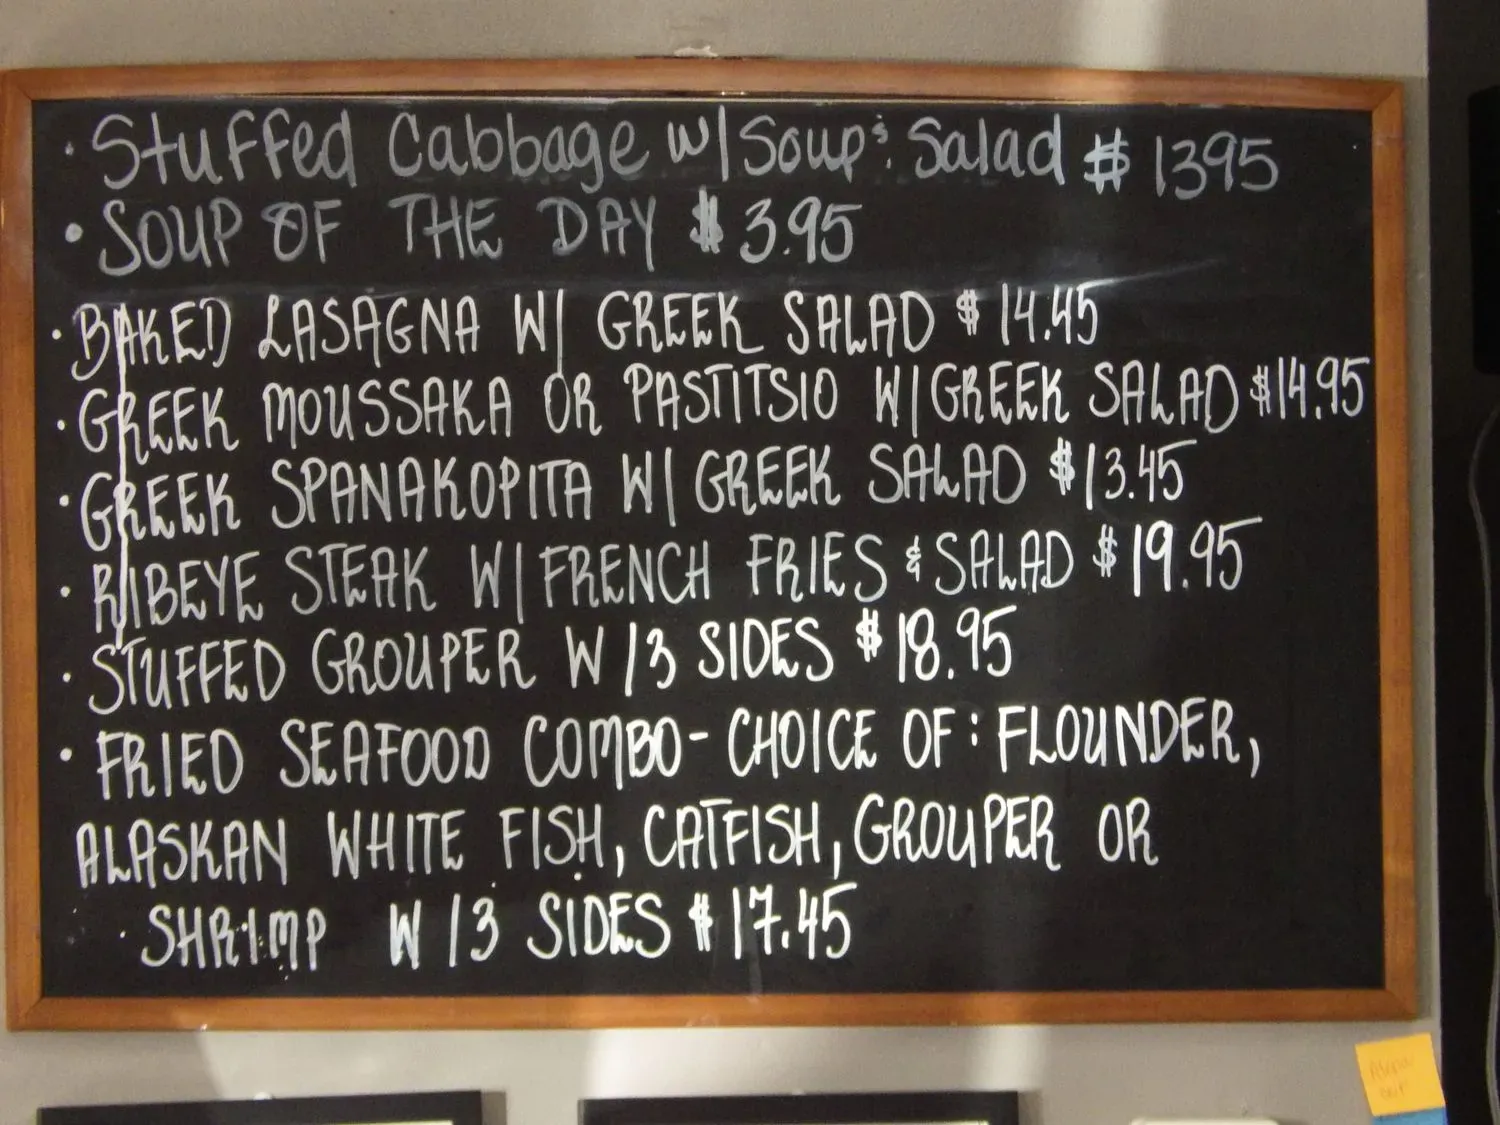 · Stuffed Cabbage w/ Soup & Salad $ 1395
• SOUP OF THE DAY $ 3.95
· BAKED LASAGNA W/ GREEK SALAD $ 14.45
· GREEK MOUSSAKA OR PASTITSIO W/ GREEK SALAD $14.95
· GREEK SPANAKOPITA W/ GREEK SALAD $13.45
· RIBEYE STEAK W/ FRENCH FRIES & SALAD $ 19.95
· STUFFED GROUPER W/3 SIDES $ 18.95
· FRIED SEAFOOD COMBO - CHOICE OF: FLOUNDER,
ALASKAN WHITE FISH, CATFISH, GROUPER OR
· SHRIMP W/3 SIDES $ 17.45